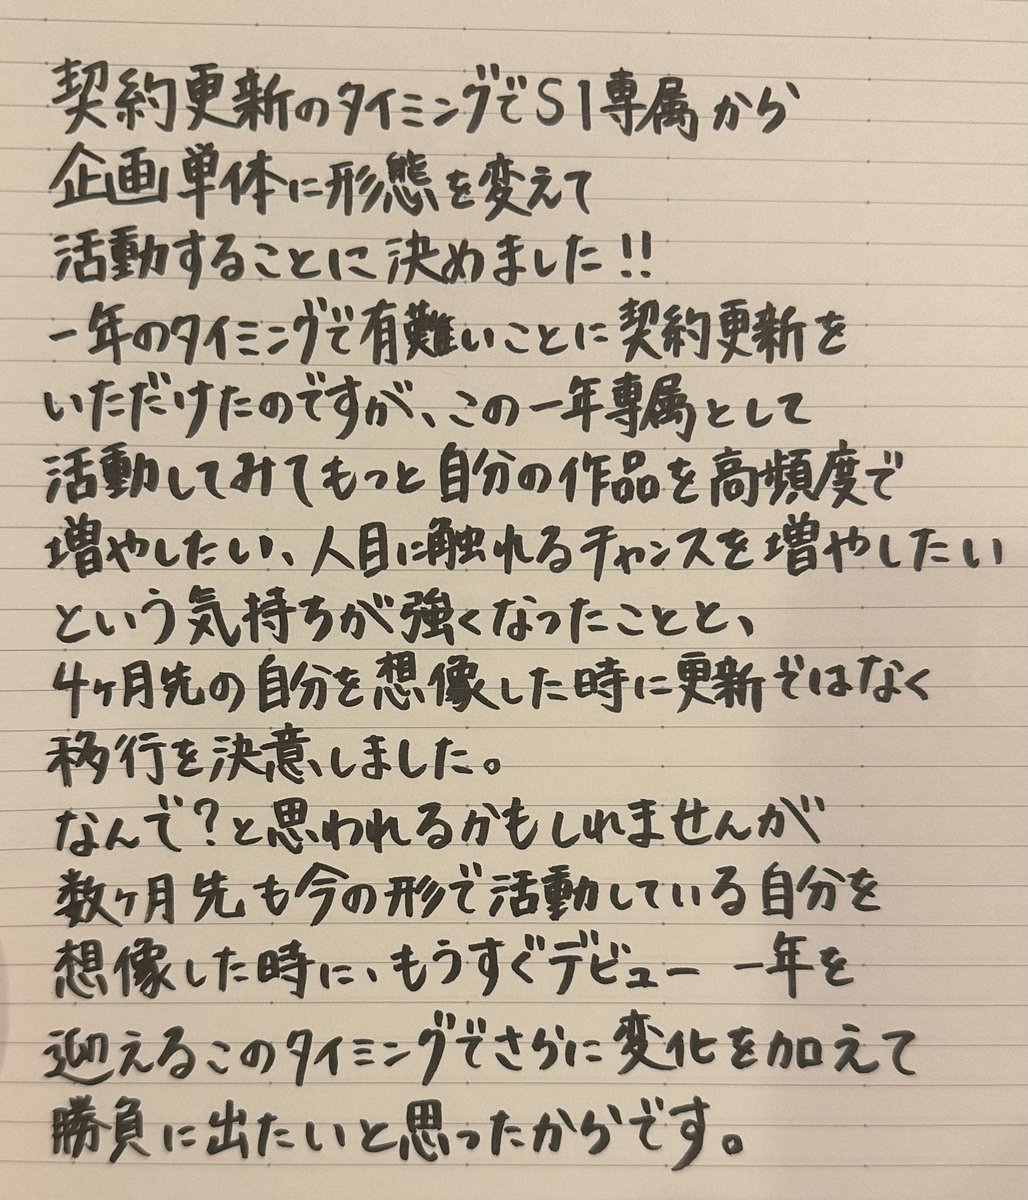 契約更新のタイミングでS1専属から
企画単体に形態を変えて
活動することに決めました!!
一年のタイミングで有難いことに契約更新を
いただけたのですが、この一年専属として
活動してみてもっと自分の作品を高頻度で
増やしたい、人目に触れるチャンスを増やしたい
という気持ちが強くなったことと、
4ヶ月先の自分を想像した時に更新ではなく
移行を決意しました。
なんで?と思われるかもしれませんが
数ヶ月先も今の形で活動している自分を
想像した時に、もうすぐデビュー一年を
迎えるこのタイミングでさらに変化を加えて
勝負に出たいと思ったからです。